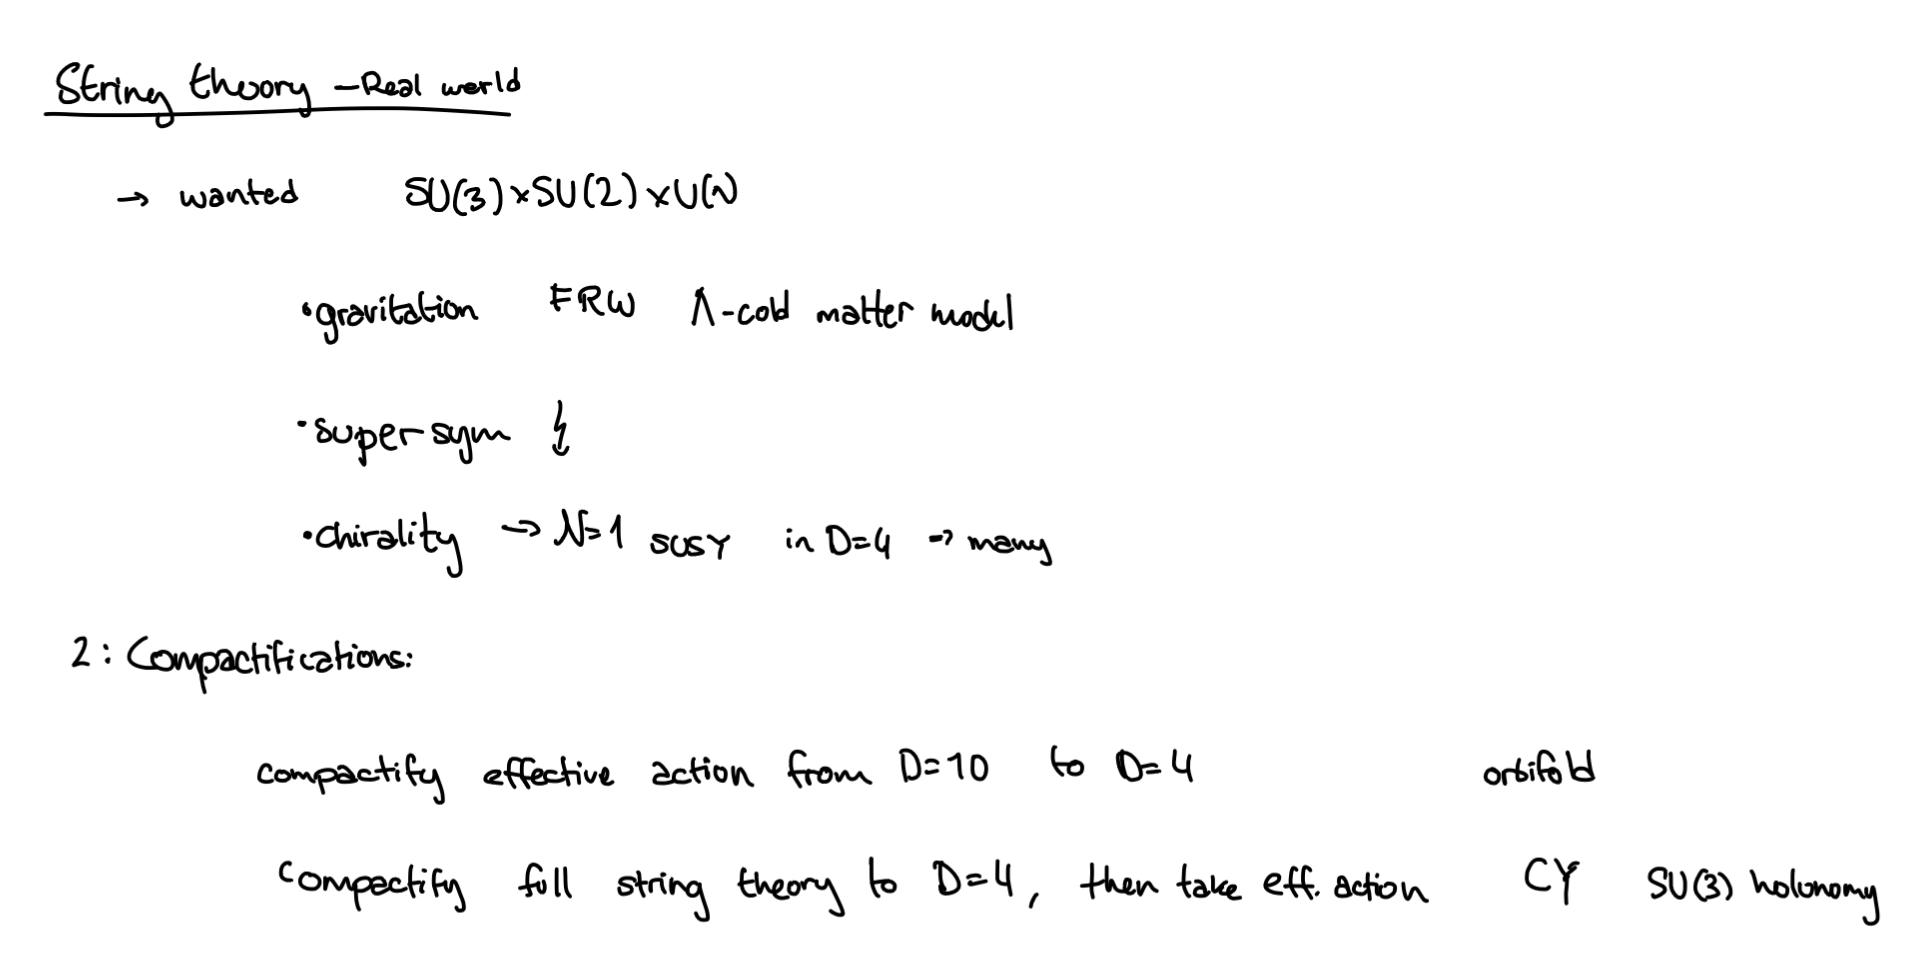 String theory – Real world
→ wanted SU(3)×SU(2)×U(1)
• gravitation FRW Λ-cold matter model
• super sym ↯
• chirality → N=1 SUSY in D=4 → many
2: Compactifications:
compactify effective action from D=10 to D=4 orbifold
compactify full string theory to D=4, then take eff. action CY SU(3) holonomy